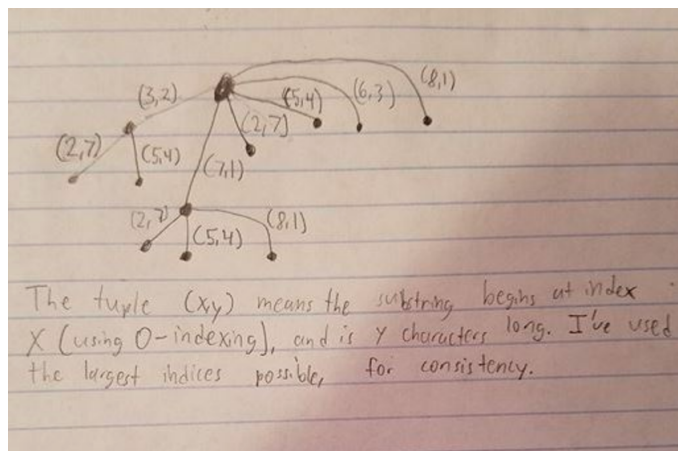 (8,1)
(3,2)
(5,4)
(6,3)
(2,7)
(2,7)
(5,4)
(7,1)
(2,7)
(5,4)
(8,1)
The tuple (x,y) means the substring begins at index
X (using 0-indexing), and is Y characters long. I've used
the largest indices possible, for consistency.